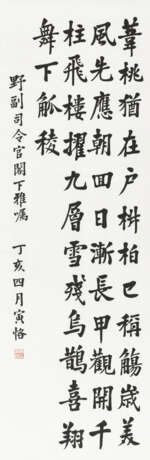 葦桃猶在戶椒柏已稱觴歲美
風先應朝回日漸長甲觀開千
柱飛樓擢九層雪殘烏鵲喜翔
舞下觚稜
野副司令官閣下雅囑 丁亥四月寅恪